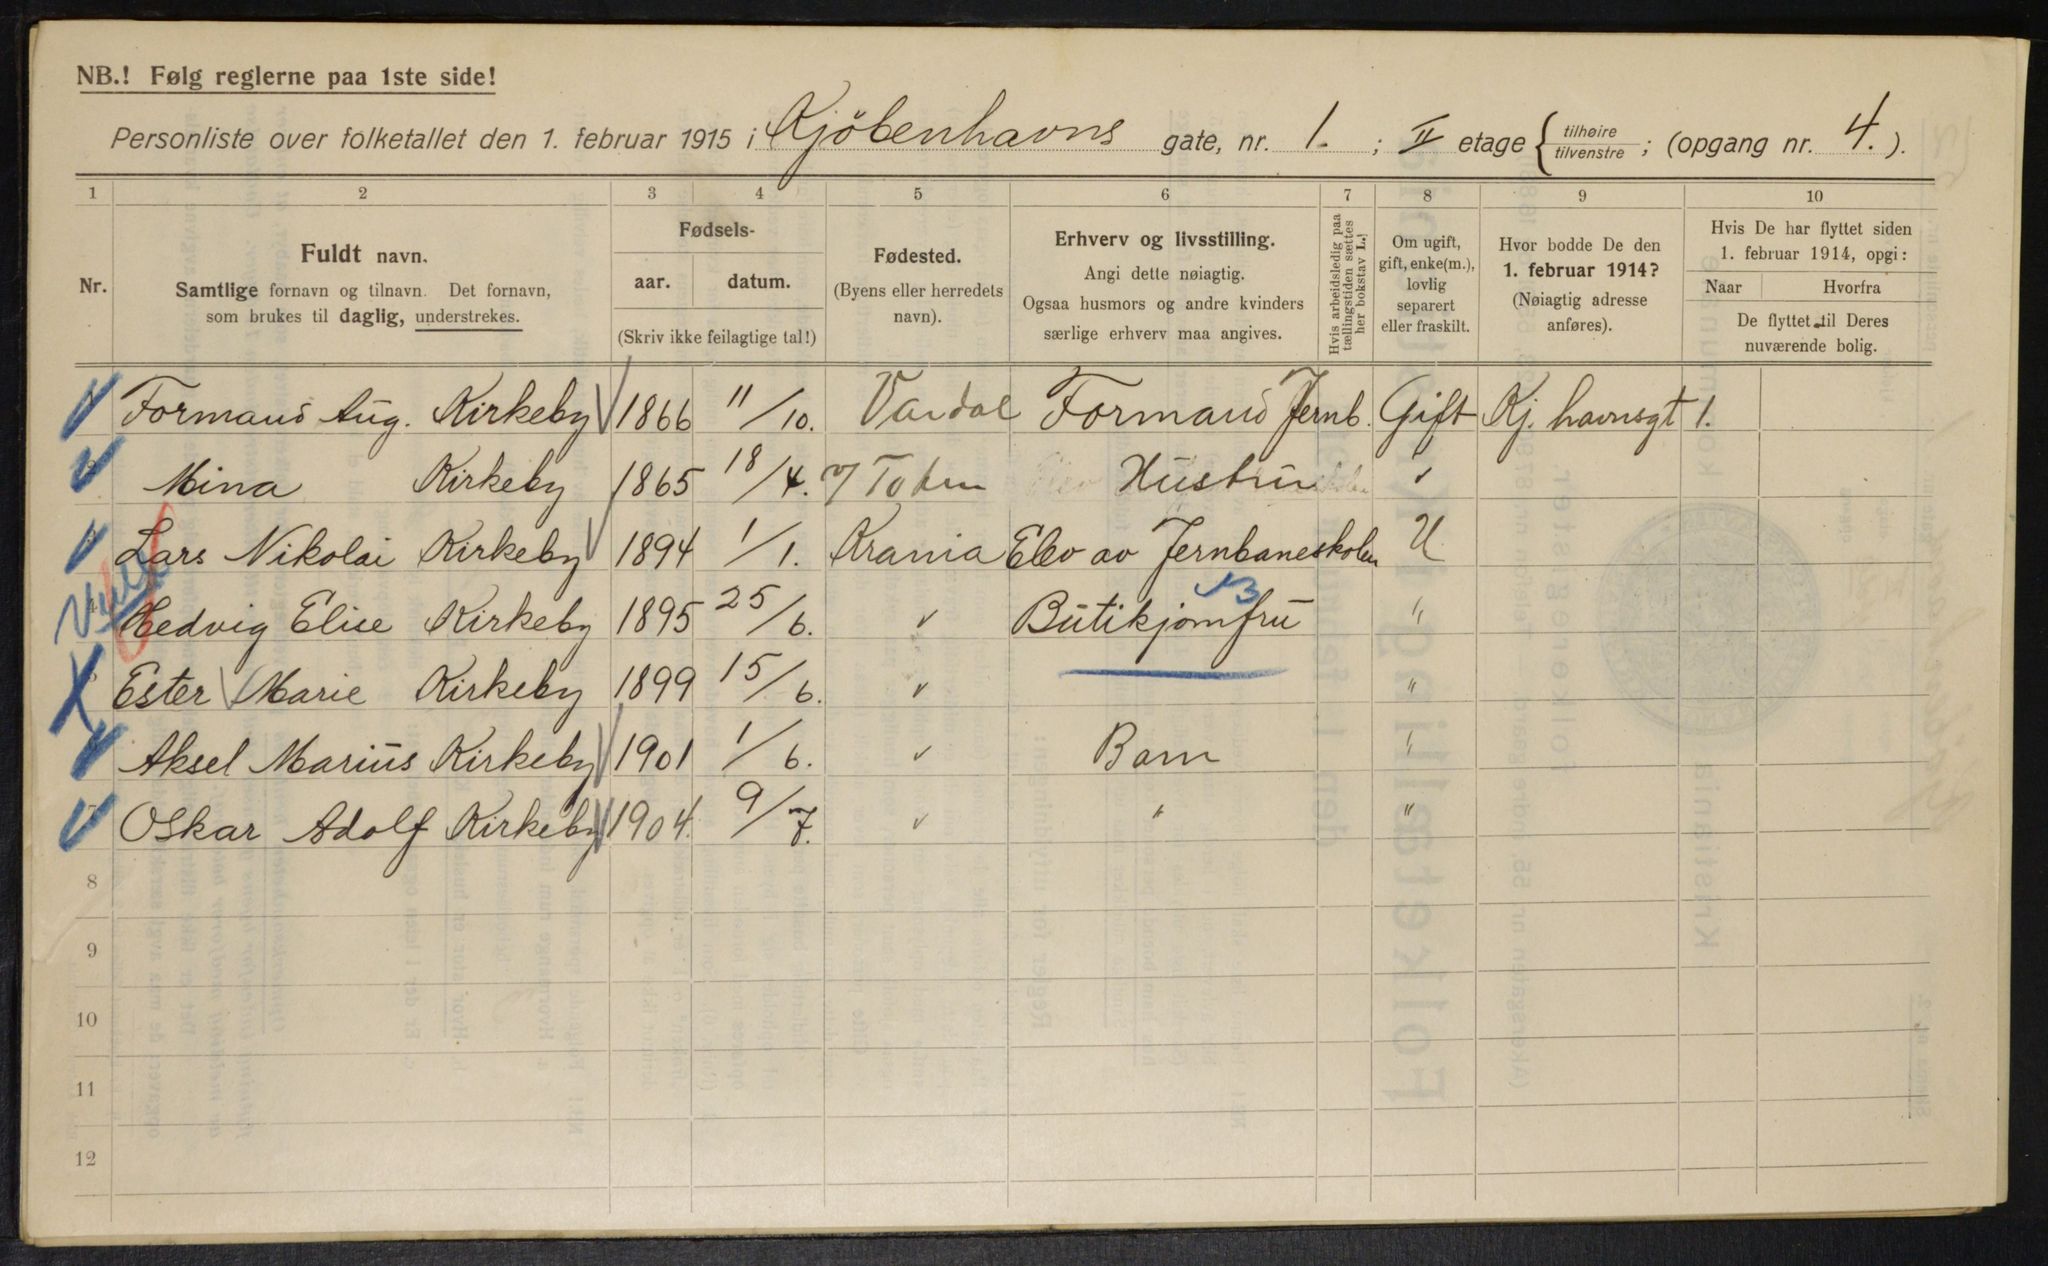 NB.! Følg reglerne paa 1ste side!
Personliste over folketallet den 1. februar 1915 i Kjöbenhavns gate, nr. 1. ; II etage { tilhøire / tilvenstre ; (opgang nr. 4. ).
1 2 3 4 5 6 7 8 9 10
Nr.
Fuldt navn.
Samtlige fornavn og tilnavn. Det fornavn,
som brukes til daglig, understrekes.
Fødsels-
aar. datum.
(Skriv ikke feilagtige tal!)
Fødested.
(Byens eller herredets
navn).
Erhverv og livsstilling.
Angi dette nøiagtig.
Ogsaa husmors og andre kvinders
særlige erhverv maa angives.
Hvis arbeidsledig paa
tællingstiden sættes
her bokstav L.!
Om ugift,
gift, enke(m.),
lovlig
separert
eller fraskilt.
Hvor bodde De den
1. februar 1914?
(Nøiagtig adresse
anføres).
Hvis De har flyttet siden
1. februar 1914, opgi:
Naar Hvorfra
De flyttet til Deres
nuværende bolig.
1 Formand Aug. Kirkeby 1866 11/10. Vardal Formand Jernb. Gift Kj. havnsgt 1.
2 Mina Kirkeby 1865 18/4. V Toten Hustru "
3 Lars Nikolai Kirkeby 1894 1/1. Krania Elev av Jernbaneskolen U
4 Hedvig Elise Kirkeby 1895 25/6. " Butikjomfru "
13
5 Ester Marie Kirkeby 1899 15/6. " "
6 Aksel Marius Kirkeby 1901 1/6. " Barn "
7 Oskar Adolf Kirkeby 1904. 9/7. " " "
8
9
10
11
12